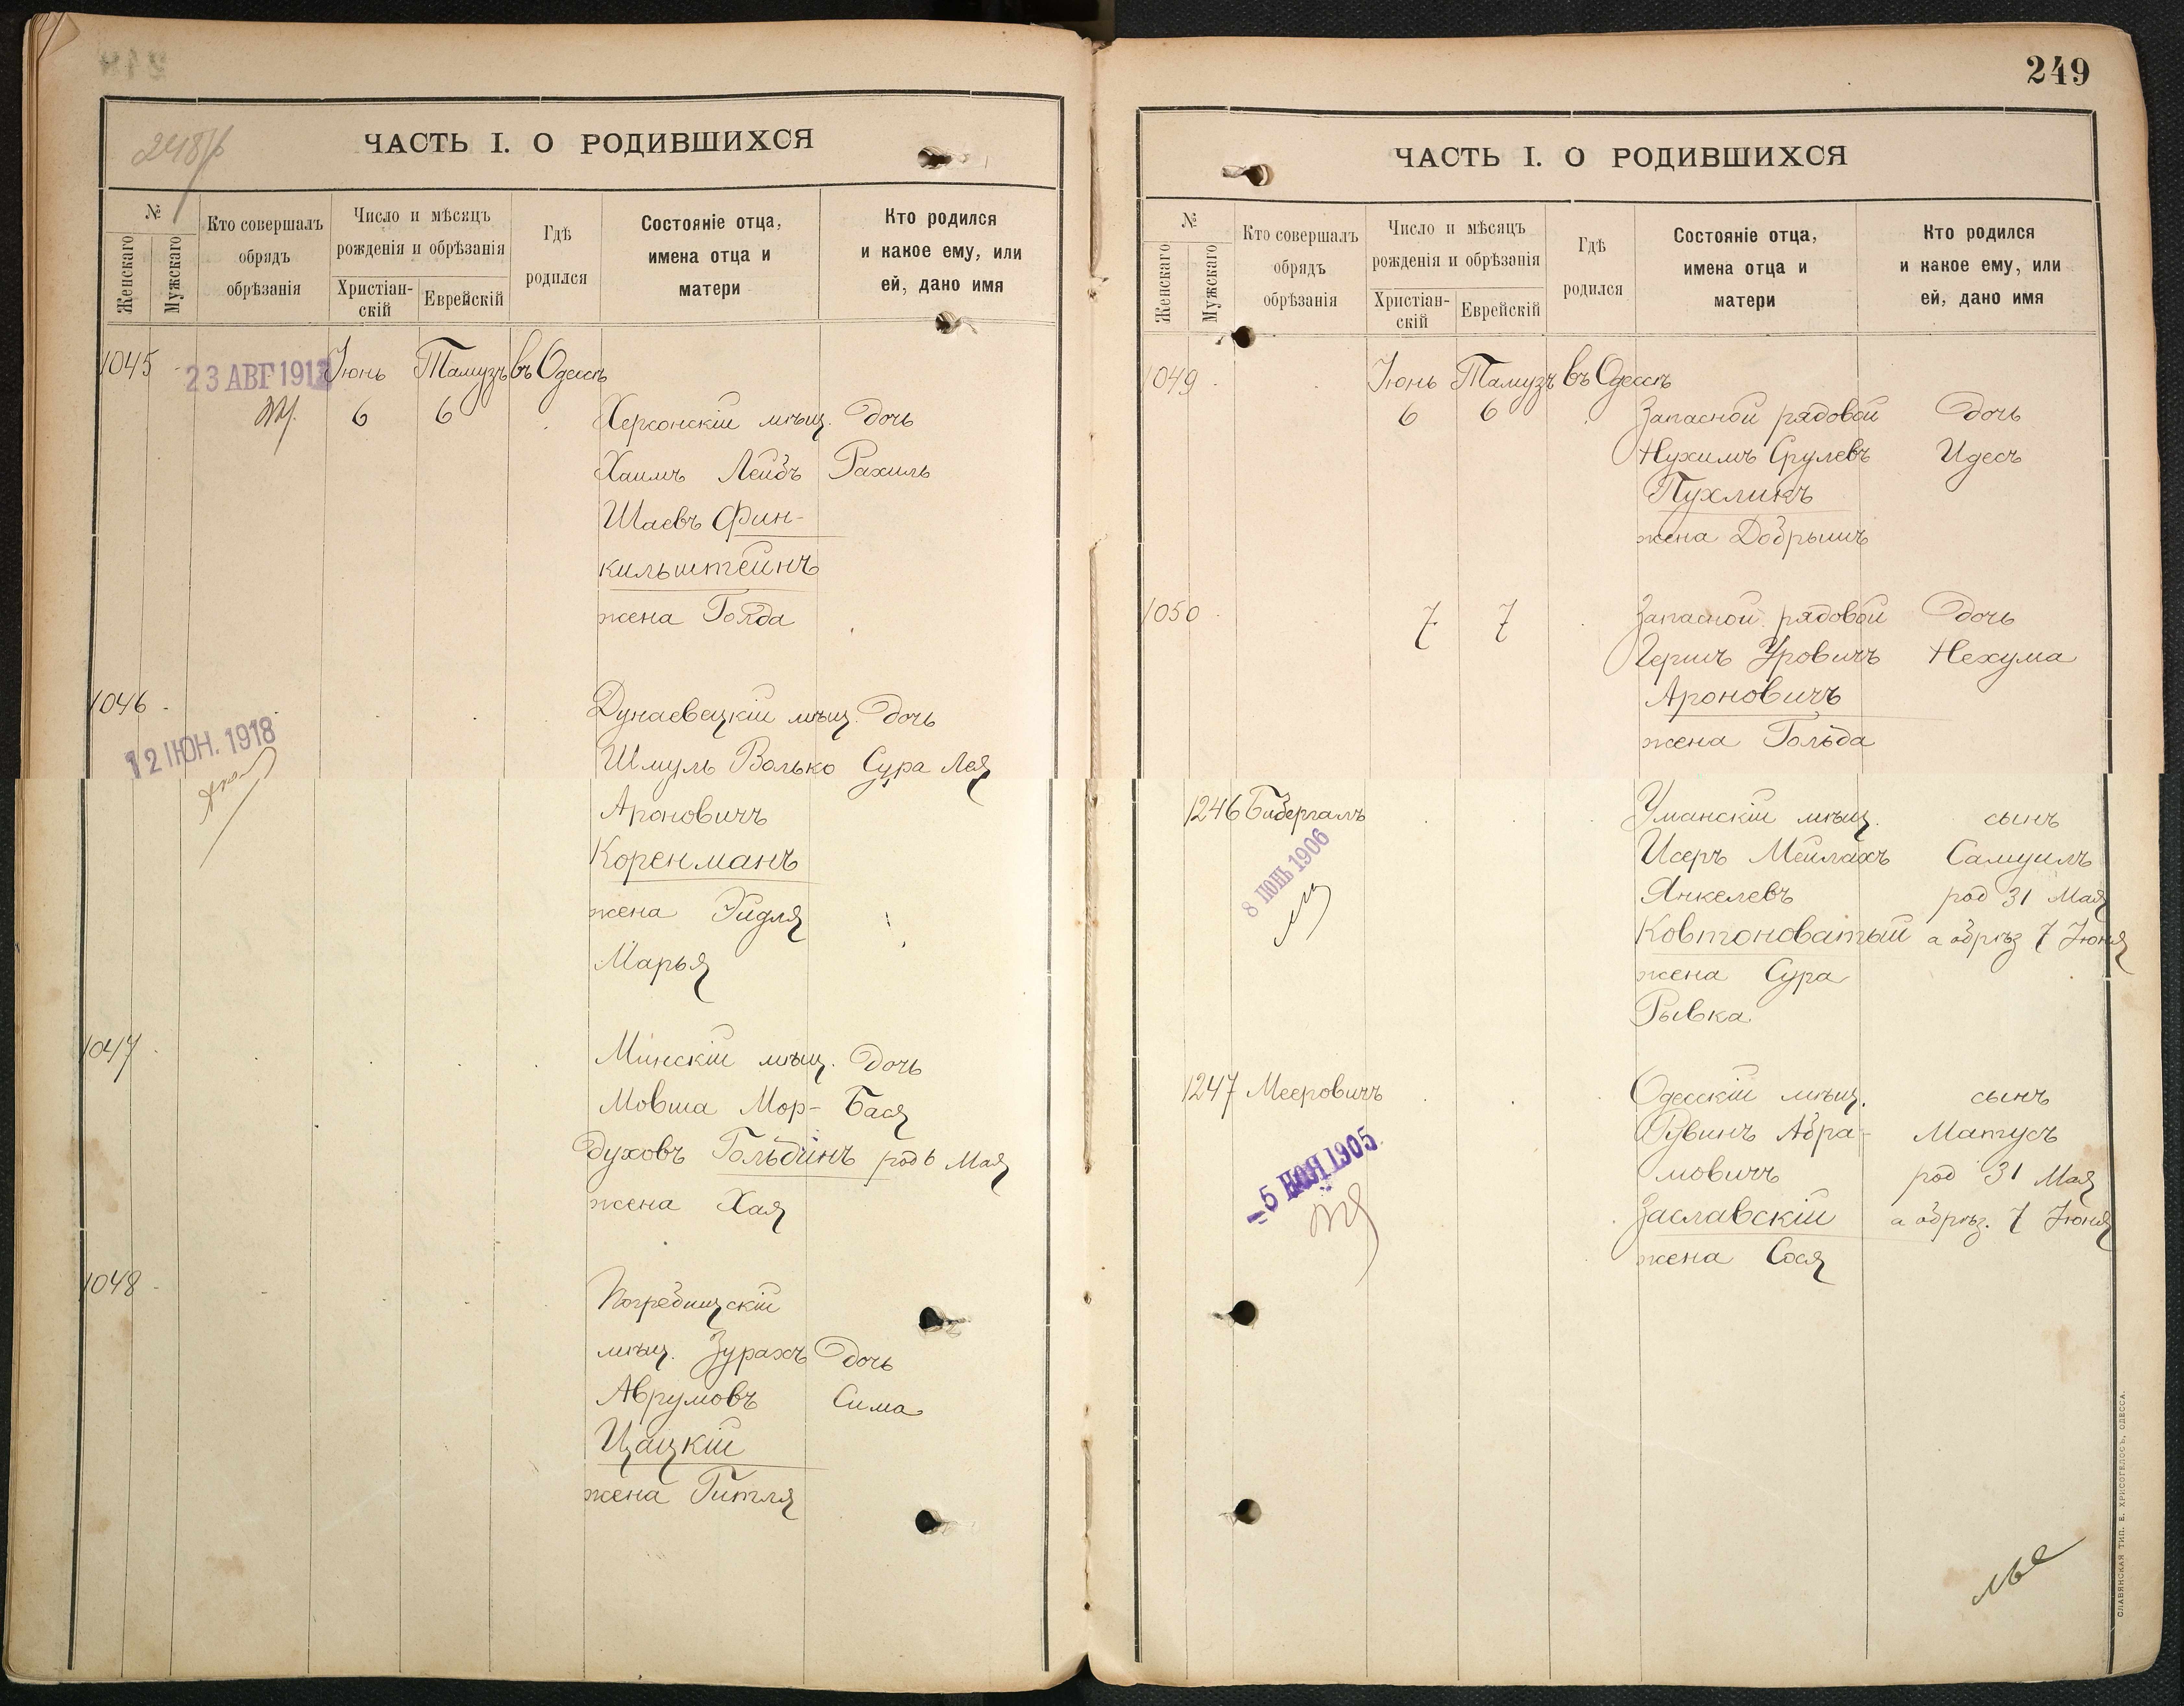 248
ЧАСТЬ I. О РОДИВШИХСЯ
№
Женскаго
Мужскаго
Кто совершалъ обрядъ обрѣзанія
Число и мѣсяцъ рожденія и обрѣзанія
Христіан-скій
Еврейскій
Гдѣ родился
Состояніе отца, имена отца и матери
Кто родился и какое ему, или ей, дано имя
1045 Іюнь Тамузъ въ Одессѣ
23 АВГ 1912
6 6 Херсонскій мѣщ. дочь
Хаимъ Лейбъ Рахиль
Шаевъ Фин-
кильштейнъ
жена Голда
1046 Дунаевецкій мѣщ. дочь
12 ІЮН. 1918
Шмуль Волько Сура Лея
Ароновичъ
Коренманъ
жена Эйдля
Марья
1047 Минскій мѣщ. дочь
Мовша Мор- Бася
духовъ Гольдинъ род 6 Мая
жена Хая
1048 Погребищскій
мѣщ. Зурахъ дочь
Аврумовъ Сима
Цацкій
жена Гитля
249
ЧАСТЬ I. О РОДИВШИХСЯ
№
Женскаго
Мужскаго
Кто совершалъ обрядъ обрѣзанія
Число и мѣсяцъ рожденія и обрѣзанія
Христіан-скій
Еврейскій
Гдѣ родился
Состояніе отца, имена отца и матери
Кто родился и какое ему, или ей, дано имя
1049 Іюнь Тамузъ въ Одессѣ
6 6 Запасной рядовой дочь
Нухимъ Срулевъ Идесъ
Пухликъ
жена Добрышъ
1050 7 7 Запасной рядовой дочь
Гершъ Уровичъ Нехума
Ароновичъ
жена Гольда
1246 Бибергалъ Уманскій мѣщ. сынъ
8 ІЮНЬ 1906
Исеръ Мейлахъ Самуилъ
Янкелевъ род 31 Мая
Ковтоноватый а обрѣз 7 Іюня
жена Сура
Рывка
1247 Мееровичъ Одесскій мѣщ. сынъ
-5 НОЯ 1905
Рувинъ Абра- Матусъ
мовичъ род 31 Мая
Заславскій а обрѣз. 7 Іюня
жена Сося
СЛАВЯНСКАЯ ТИП. Е. ХРИСОГЕЛОСЪ, ОДЕССА.